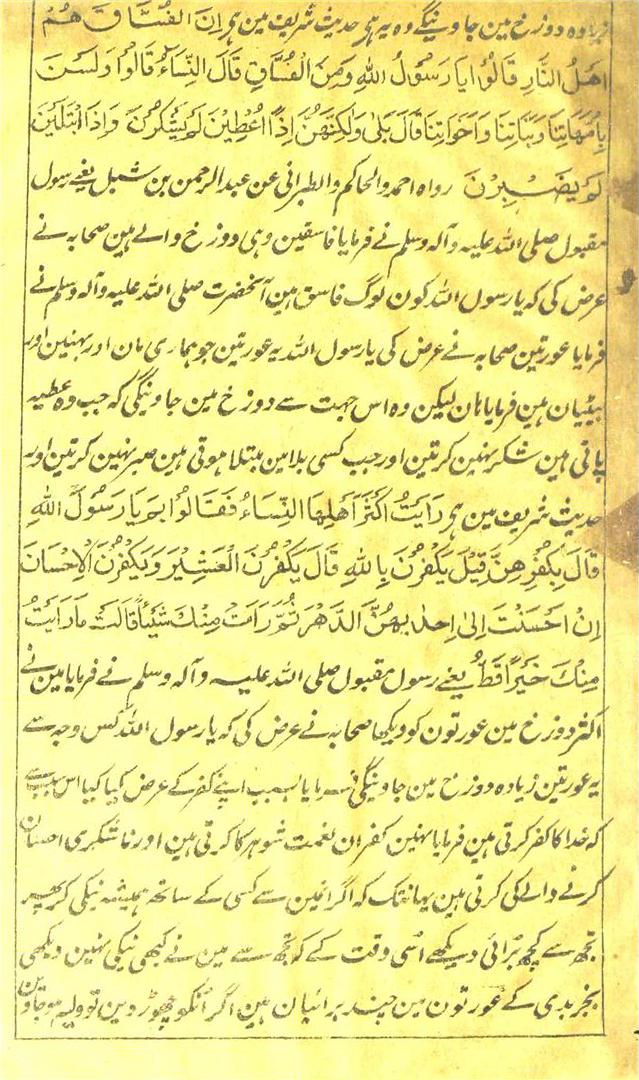 زیادہ دوزخ مین جاوینگے وہ یہ ہی حدیث شریف مین ہی اِنَّ الْفُسَّاقَ هُمْ
اَهْلُ النَّارِ قَالُوْا یَا رَسُوْلَ اللهِ وَمَنِ الْفُسَّاقُ قَالَ النِّسَاءُ قَالُوْا وَلَسْنَ
بِاُمَّهَاتِنَا وَبَنَاتِنَا وَاَخَوَاتِنَا قَالَ بَلٰى وَلٰكِنَّهُنَّ اِذَا اُعْطِیْنَ لَمْ یَشْكُرْنَ وَاِذَا ابْتُلِیْنَ
لَمْ یَصْبِرْنَ رواہ احمد والحاکم والطبرانی عن عبدالرحمن بن شبل یعنے رسول
مقبول صلی اللہ علیہ وآلہ وسلم نے فرمایا فاسقین وہی دوزخ والے ہین صحابہ نے
عرض کی کہ یا رسول اللہ کون لوگ فاسق ہین آنحضرت صلی اللہ علیہ وآلہ وسلم نے
فرمایا عورتین صحابہ نے عرض کی یا رسول اللہ یہ عورتین جو ہماری مان اور بہنین اور
بیٹیان ہین فرمایا ہان لیکن وہ اس جہت سے دوزخ مین جاوینگی کہ جب وہ عطیہ
پاتی ہین شکر نہین کرتین اور جب کسی بلا مین مبتلا ہوتی ہین صبر نہین کرتین اور
حدیث شریف مین ہی رَاَیْتُ اَكْثَرَ اَهْلِهَا النِّسَاءُ فَقَالُوْا بِمَ یَا رَسُوْلَ اللهِ
قَالَ بِكُفْرِهِنَّ قِیْلَ یَكْفُرْنَ بِاللهِ قَالَ یَكْفُرْنَ الْعَشِیْرَ وَیَكْفُرْنَ الْاِحْسَانَ
اِنْ اَحْسَنْتَ اِلٰى اِحْدٰىهُنَّ الدَّهْرَ ثُمَّ رَاَتْ مِنْكَ شَیْئًا قَالَتْ مَا رَاَیْتُ
مِنْكَ خَیْرًا قَطُّ یعنے رسول مقبول صلی اللہ علیہ وآلہ وسلم نے فرمایا مین نے
اکثر دوزخ مین عورتون کو دیکھا صحابہ نے عرض کی کہ یا رسول اللہ کس وجہ سے
یہ عورتین زیادہ دوزخ مین جاوینگی فرمایا بسبب اپنے کفر کے عرض کیا کیا اس سبب سے
کہ خدا کا کفر کرتی ہین فرمایا نہین کفران نعمت شوہر کا کرتی ہین اور ناشکری احسان
کرنے والے کی کرتی ہین یہانتک کہ اگر انمین سے کسی کے ساتھ ہمیشہ نیکی کر پھر
تجھ سے کچھ برائی دیکھے اسی وقت کہے کہ تجھ سے مین نے کبھی نیکی نہین دیکھی
بجز بدی کے عورتون مین چند برائیان ہین اگر انکو چھوڑ دین تو ولیہ ہو جاوین